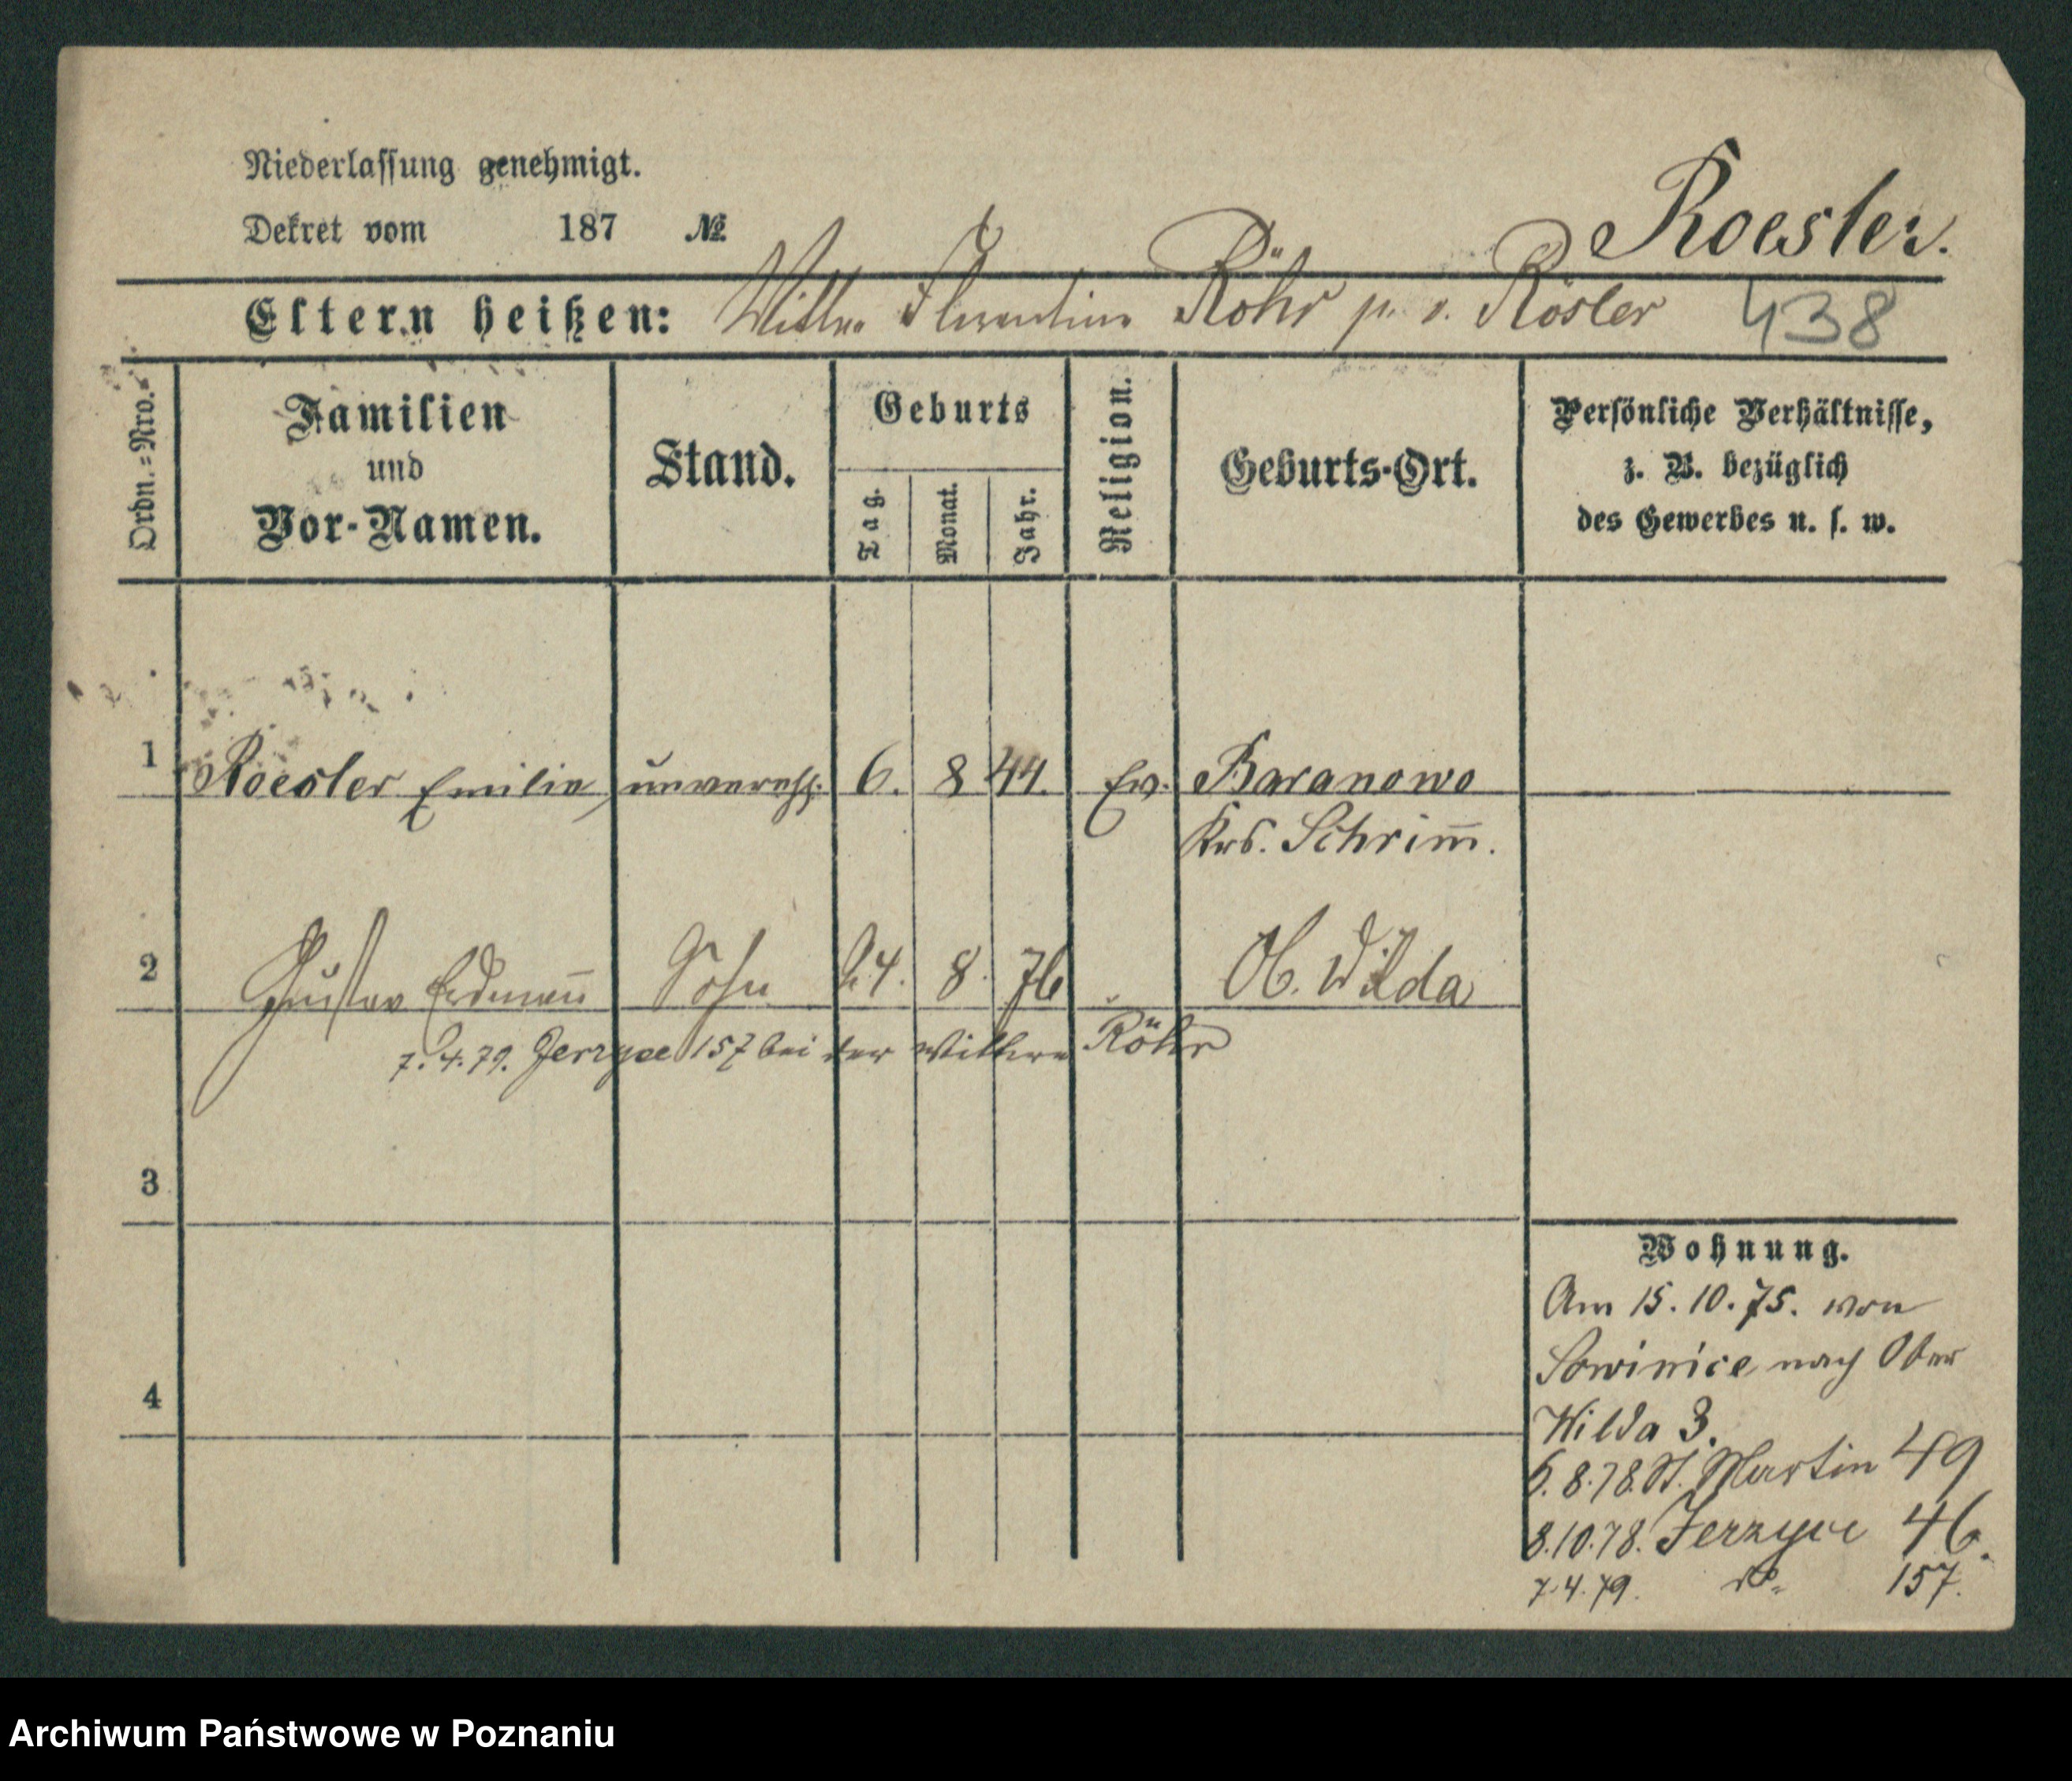 Niederlassung genehmigt.
Dekret vom 187 №
Roesler.
Eltern heißen: Wittwe Florentine Röhr p. v. Rösler 438
Ordn.=Nro.
Familien und Vor-Namen.
Stand.
Geburts
Tag.
Monat.
Jahr.
Religion.
Geburts-Ort.
Persönliche Verhältnisse,
z. B. bezüglich
des Gewerbes u. s. w.
1 Roesler Emilie unvereh. 6. 8 44. Ev. Baranowo
Krs. Schrim̄.
2 Gustav Erdman̄ Sohn 24. 8. 76 " Ob. Wilda
7.4.79. Jerzyce 157 bei der Wittwe Röhr
3
4
Wohnung.
Am 15.10.75. von
Sowinice nach Ober
Wilda 3.
5.8.78. St. Martin 49
8.10.78. Jerzyce 46.
7.4.79. do. 157.
Archiwum Państwowe w Poznaniu